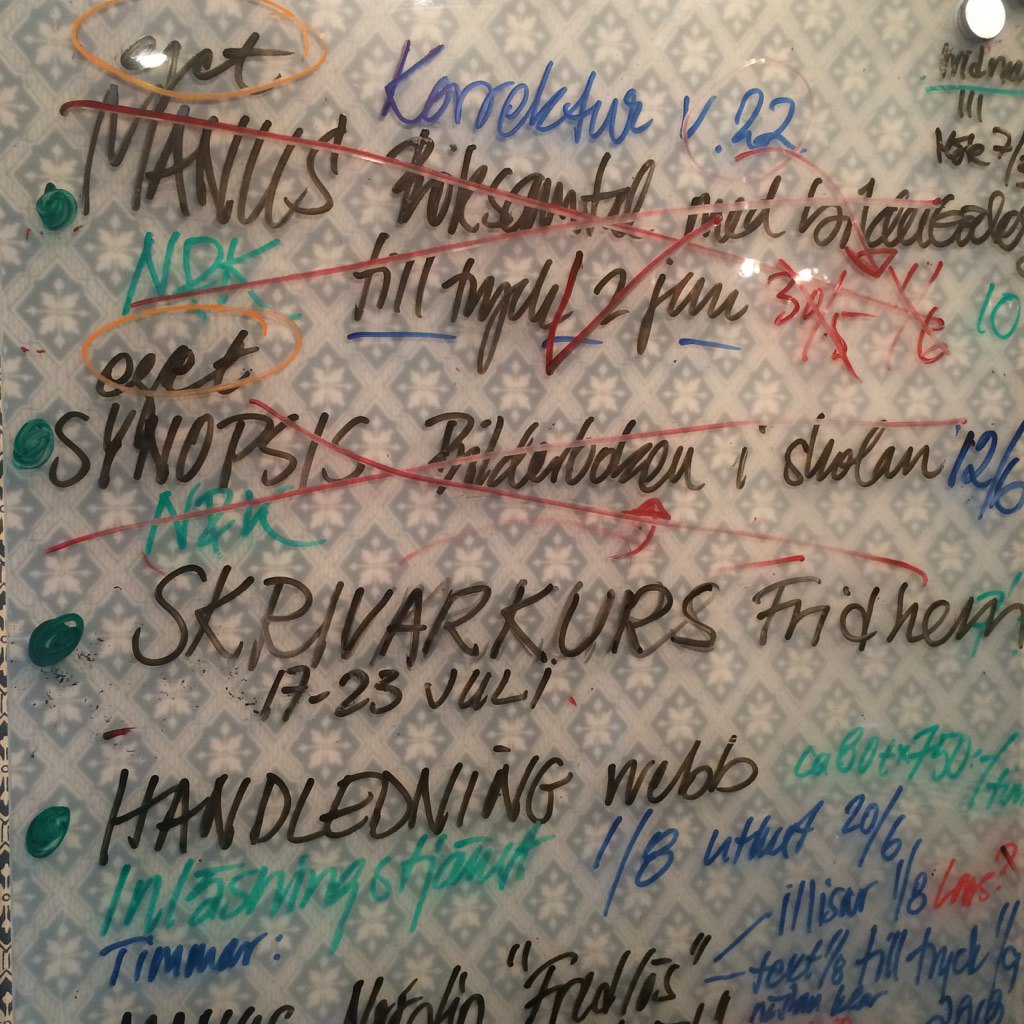 eget
Korrektur v.22
MANUS Boksamtal med
NRK till tryck 2 juni 30/5 1/6 10
eget
SYNOPSIS Bilderboken i skolan 12/6
NRK
SKRIVARKURS Fridhem
17-23 JULI
HANDLEDNING webb ca 80 t x 750:-/tim
Inläsningstjänst 1/8 utkast 20/6
Timmar: illisar 1/8
"Fredlös" text 1/8 till tryck 1/9
2018